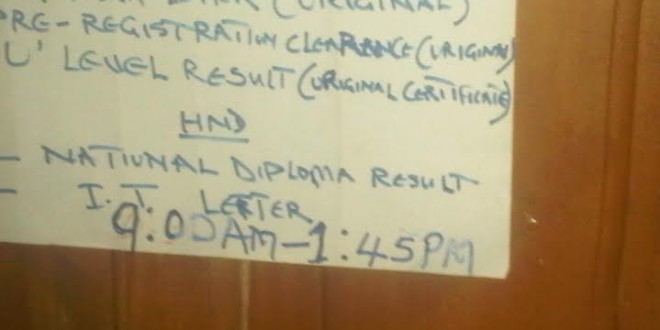 (ORIGINAL)
PRE-REGISTRATION CLEARANCE (ORIGINAL)
O' LEVEL RESULT (ORIGINAL CERTIFICATE)
HND
- NATIONAL DIPLOMA RESULT
- I.T. LETTER
9:00AM-1:45PM